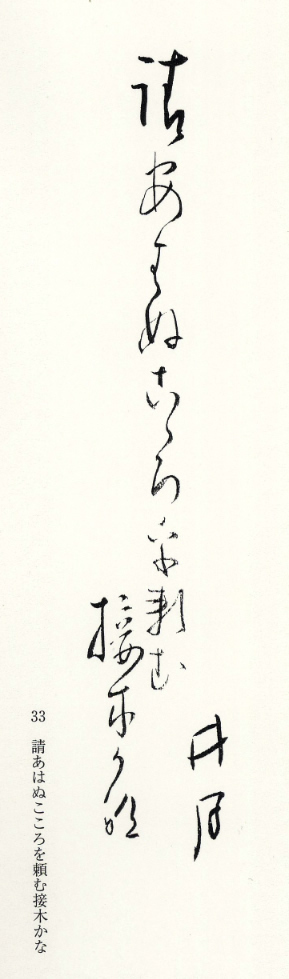 請あはぬこゝろを頼む
接木かな
井月
33 請あはぬこころを頼む接木かな